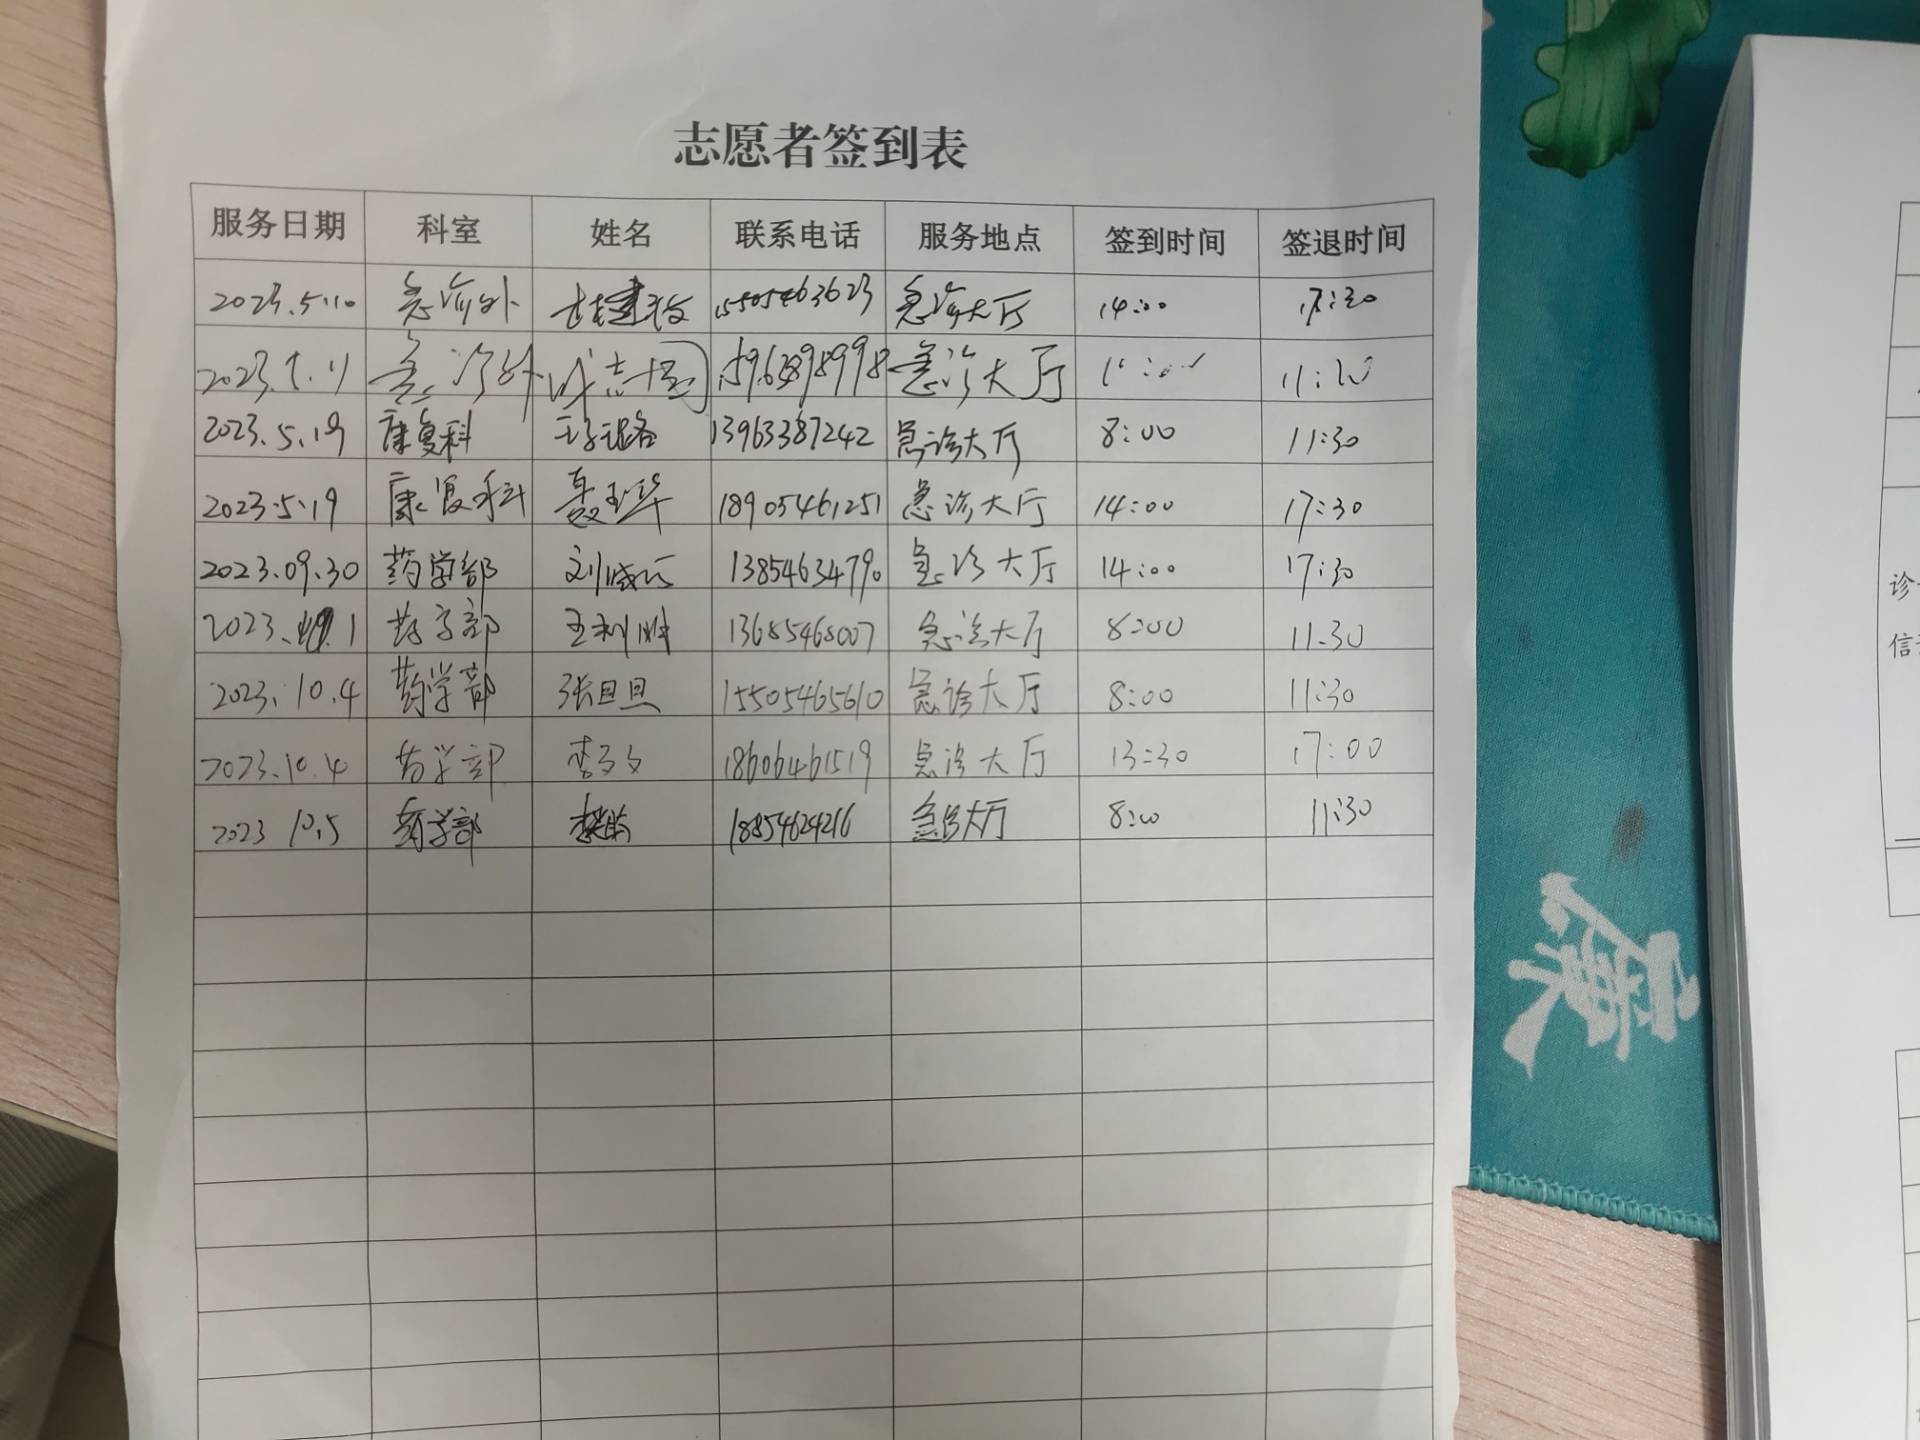 志愿者签到表
服务日期 科室 姓名 联系电话 服务地点 签到时间 签退时间
2023.5.10 急诊外 15505463623 急诊大厅 14:00 17:30
2023.5.11 急诊外 急诊大厅 11:20
2023.5.19 康复科 13963387242 急诊大厅 8:00 11:30
2023.5.19 康复科 聂玉华 18905461251 急诊大厅 14:00 17:30
2023.09.30 药学部 13854634790 急诊大厅 14:00 17:30
2023. 1 药学部 王利胜 13685468007 急诊大厅 8:00 11.30
2023.10.4 药学部 张旦旦 15505465610 急诊大厅 8:00 11:30
2023.10.4 药学部 李文文 18606461519 急诊大厅 13:30 17:00
2023 10.5 药学部 18854624216 急诊大厅 8:00 11:30
廉
诊
信